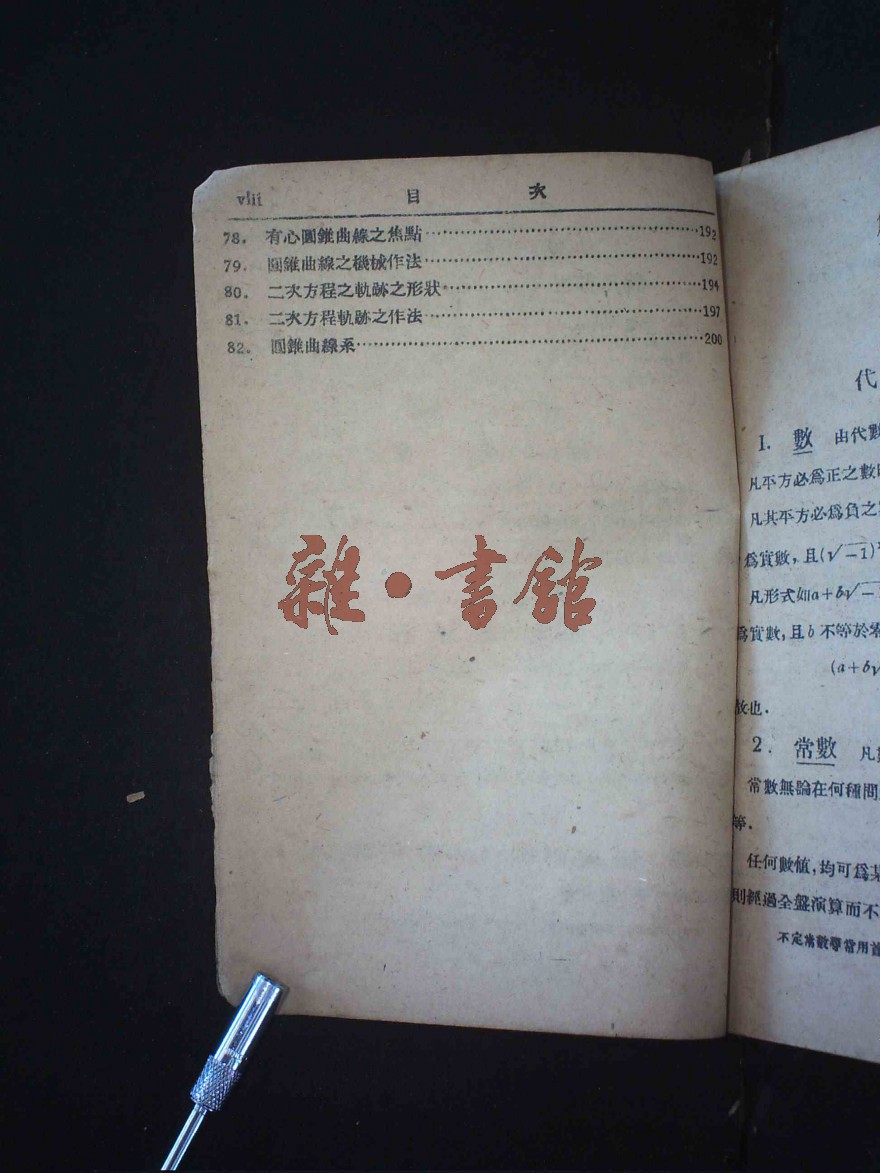 viii 目 次
78. 有心圓錐曲線之焦點 192
79. 圓錐曲線之機械作法 192
80. 二次方程之軌跡之形狀 194
81. 二次方程軌跡之作法 197
82. 圓錐曲線系 200
雜·書館
代
1. 數 由代數
凡平方必爲正之數
凡其平方必爲負之
爲實數，且(√−1)
凡形式如a+b√−
爲實數，且b不等於
(a+b√
故也.
2. 常數 凡
常數無論在何種問
等.
任何數值，均可爲某
則經過全盤演算而不
不定常數學常用首